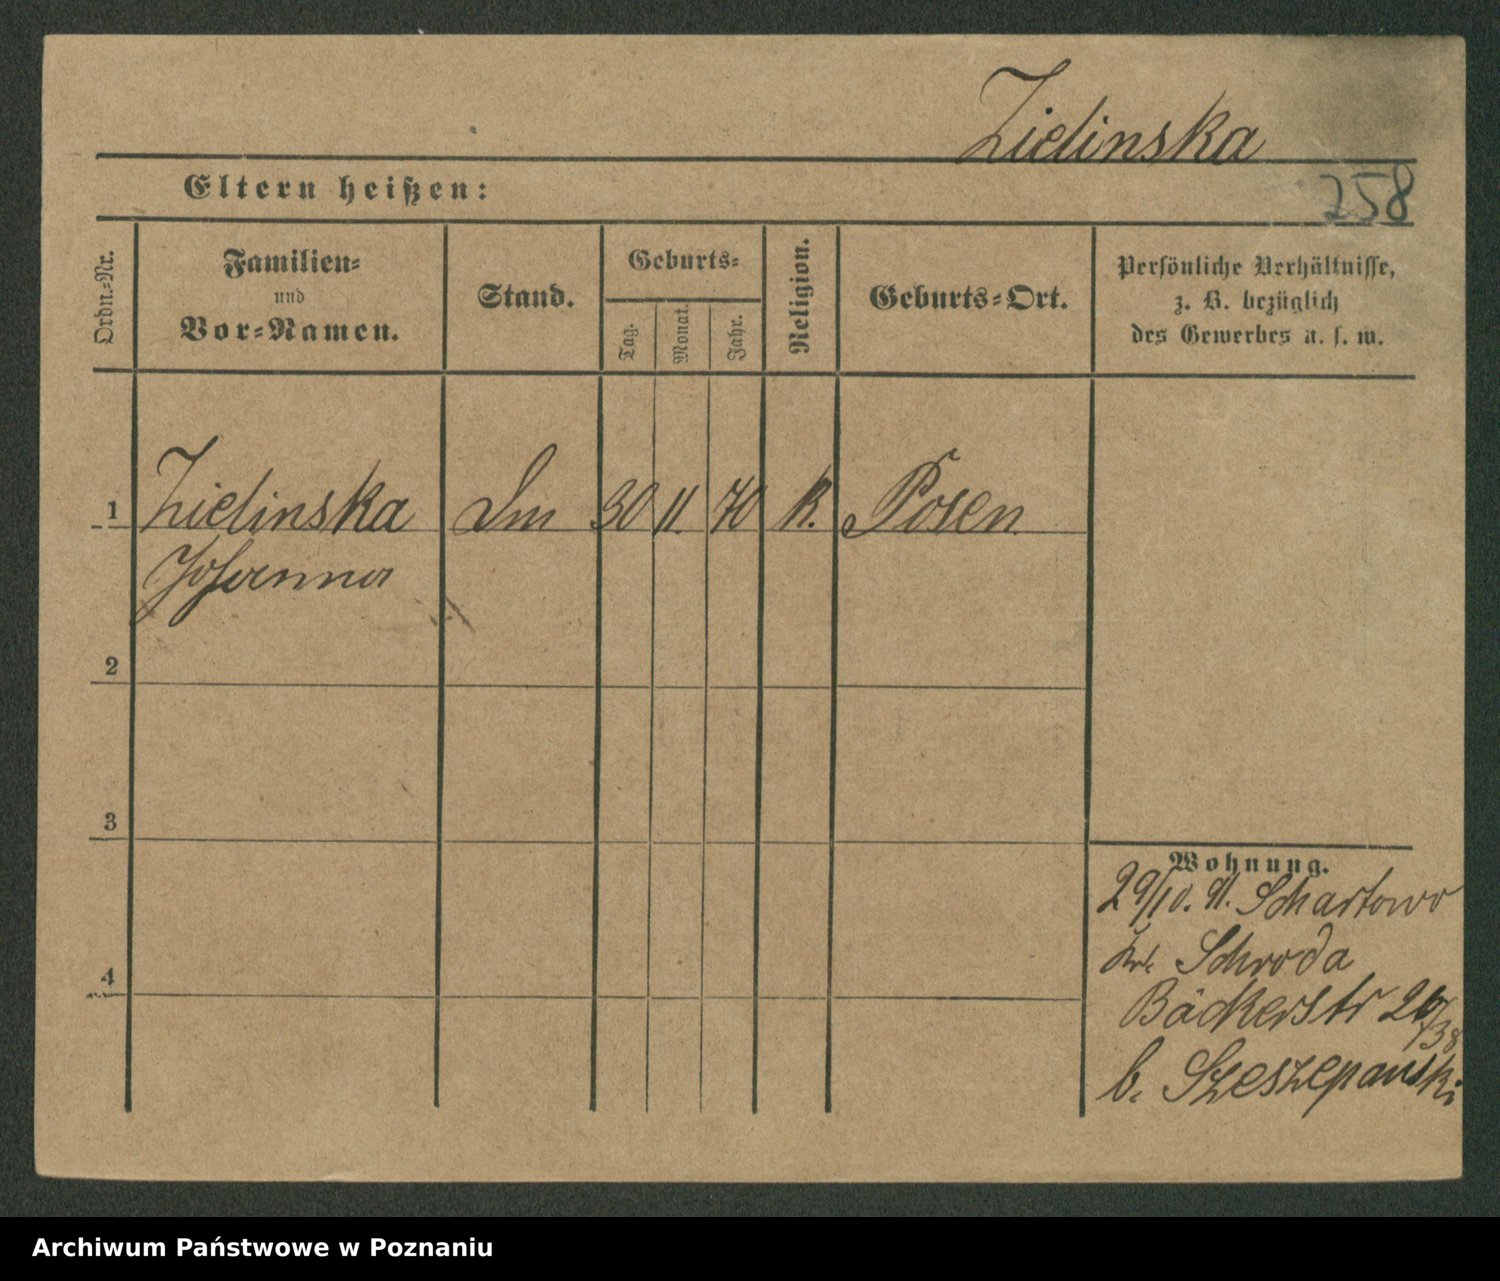 Zielinska
Eltern heißen:
258
Ordn.-Nr.
Familien-
und
Vor-Namen.
Stand.
Geburts-
Tag.
Monat.
Jahr.
Religion.
Geburts-Ort.
Persönliche Verhältnisse,
z. B. bezüglich
des Gewerbes u. s. w.
1 Zielinska 30 11. 70 K. Posen
Johanna
2
3
4
Wohnung.
29/10. 91. Schartowo
Kr. Schroda
Bäckerstr
b. Szeszepanski
Archiwum Państwowe w Poznaniu